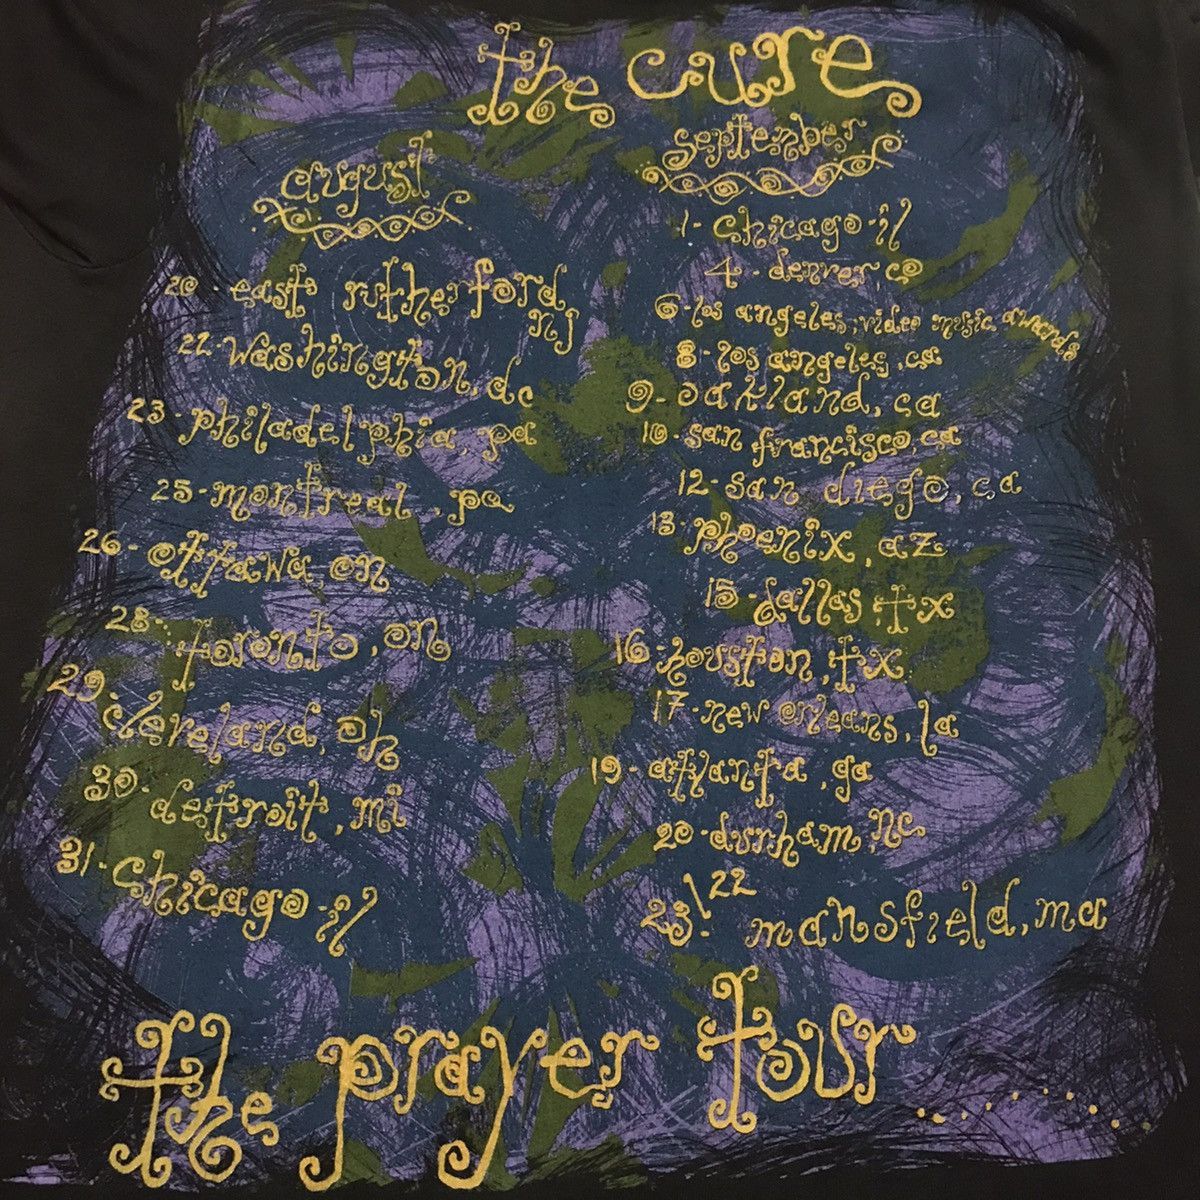 the cure
august
20 - east rutherford,
nj
22 - washington, dc
23 - philadelphia, pa
25 - montreal, pa
26 - ottawa, on
28 - toronto, on
29 - cleveland, oh
30 - detroit, mi
31 - chicago - il
september
1 - chicago - il
4 - denver, co
6 - los angeles, video music awards
8 - los angeles, ca
9 - oakland, ca
10 - san francisco, ca
12 - san diego, ca
13 - phoenix, az
15 - dallas, tx
16 - houston, tx
17 - new orleans, la
19 - atlanta, ga
20 - durham, nc
22
23! mansfield, ma
the prayer tour ..........